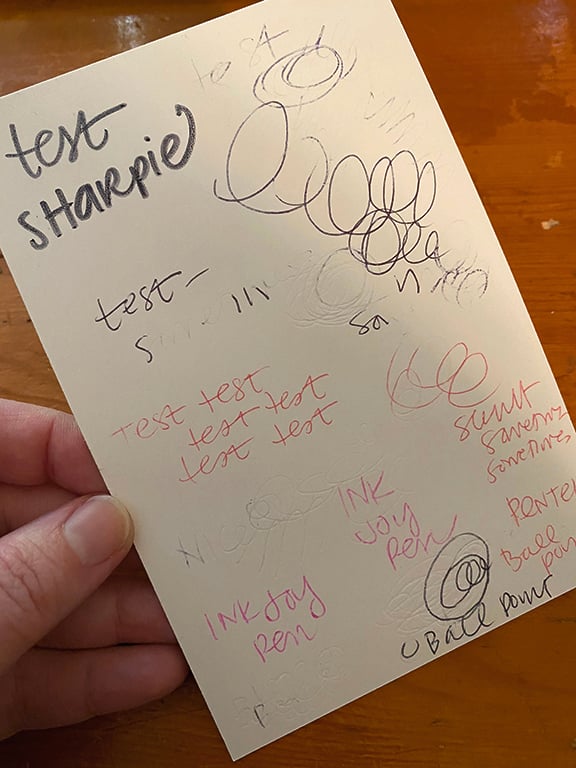 test
test
SHARPIE
test -
S
Sa
Test test
test test
test test
sometimes
Nice
INK
JOY
PEN
PENTEL
Ball
INK JOY
PEN
U Ball point